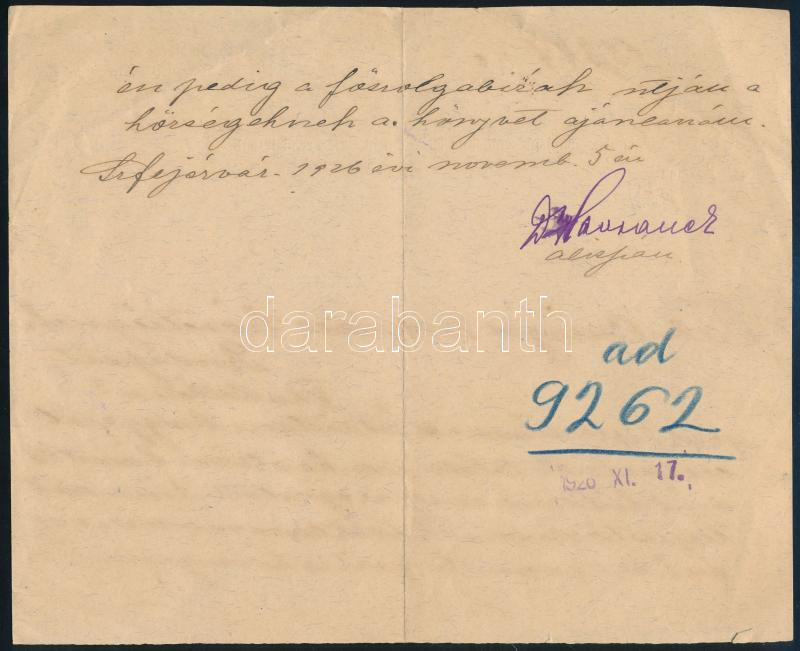 én pedig a főszolgabirák utján a
községeknek a könyvet ajánlanám.
Szfejérvár. 1926 évi novemb. 5 én
Dr Havranek
alispán
darabanth
ad
9262
1926 XI. 17.